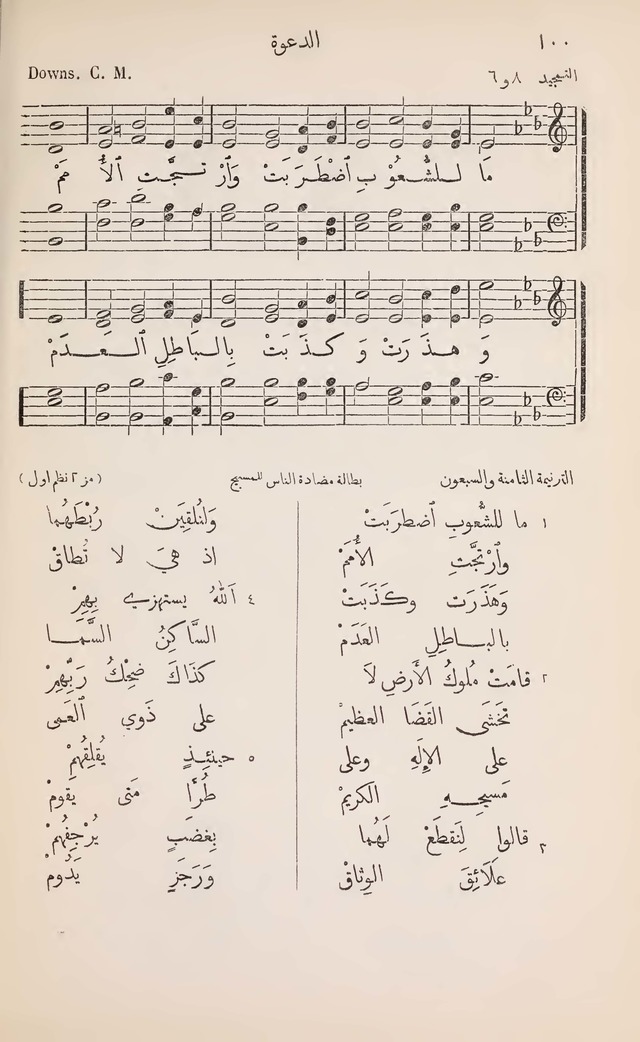 ١٠٠
الدعوة
التمجيد ٨ و ٦
Downs. C. M.
مَا لـلـشُّـعُوْبِ ٱضْطَرَبَتْ وَٱرْتَـجَّـتِ ٱلْأُمَمْ
وَ هـذَرَتْ وَ كـذَبَتْ بِالـبَاطِلِ ٱلـعَـدَمْ
الترنيمة الثامنة والسبعون
بطالة مضادة الناس للمسيح
(مز ٢ نظم اول)
١ ما للشُّعُوبِ ٱضطرَبَتْ
وٱرْتجَّتِ الأُمَمْ
وَهَذَرَت وكَذَبَتْ
بالبـاطلِ العَدَمْ
٢ قامَتْ مُلوكُ الأَرضِ لاَ
تخشَى القَضَا العظيمْ
على الإِلَهِ وعلى
مَسيحِـهِ الكريمْ
٣ قالوا لِنَقطَعْ لَهُما
عَلَائِقَ الوِثاقْ
وَلنُلقِيَنْ رُبْطَهُما
اذ هيَ لا تُطاقْ
٤ اَللهُ يستهزي بِهِمْ
السَّاكِنُ السَّمَـا
كذَاكَ ضِحْكُ رَبِّهِمْ
على ذَوي العَمى
٥ حينئِـذٍ يُقلِقُهُمْ
طُرًّا مَتى يقومْ
بِغضَبٍ يُرْجِفُهُمْ
وَرَجَزٍ يَدُومْ